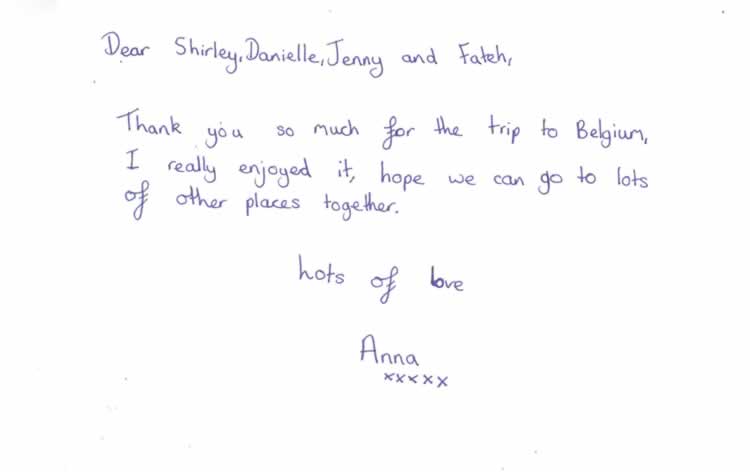 Dear Shirley, Danielle, Jenny and Fateh,
Thank you so much for the trip to Belgium,
I really enjoyed it, hope we can go to lots
of other places together.
hots of love
Anna
xxxxx